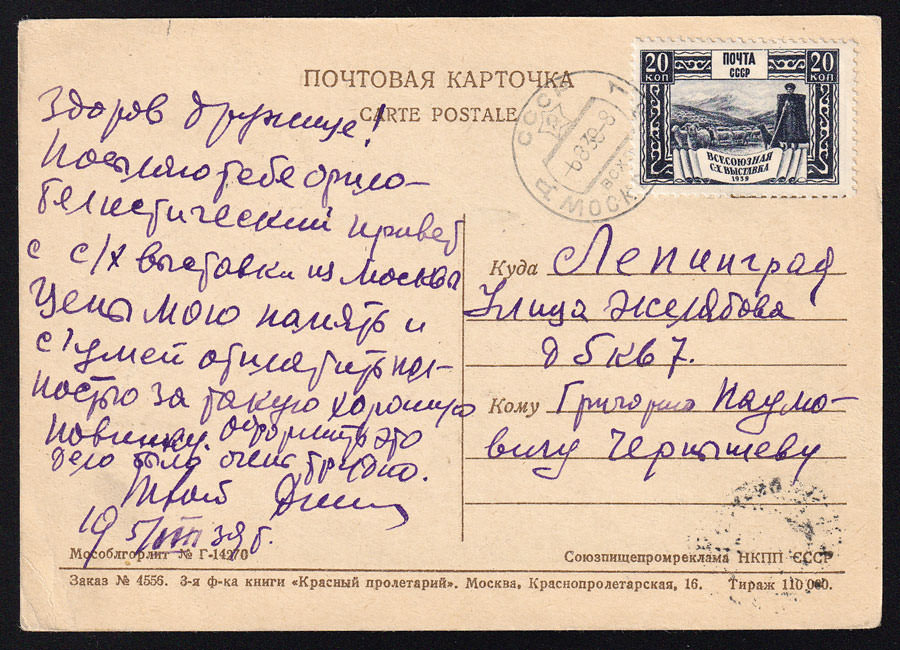 ПОЧТОВАЯ КАРТОЧКА
CARTE POSTALE
20
КОП
ПОЧТА
СССР
20
КОП
ВСЕСОЮЗНАЯ
С-Х. ВЫСТАВКА
1939
СССР
6 8 39 - 8
МОСК
Здоров дружище!
Посылаю тебе фила-
телистический привет
с с/х выставки из Москвы
Цени мою память и
сумей отплатить пол-
ностью за такую хорошую
новинку. Оформить это
дело было очень трудно.
Твой
5/VIII 39 г.
Куда Ленинград
Улица Желябова
д 5 кв 7.
Кому Григорию Наумо-
вичу Чернышеву
Мособлгорлит № Г-14270
Союзпищепромреклама НКПП СССР
Заказ № 4556. 3-я ф-ка книги «Красный пролетарий». Москва, Краснопролетарская, 16. Тираж 110 000.